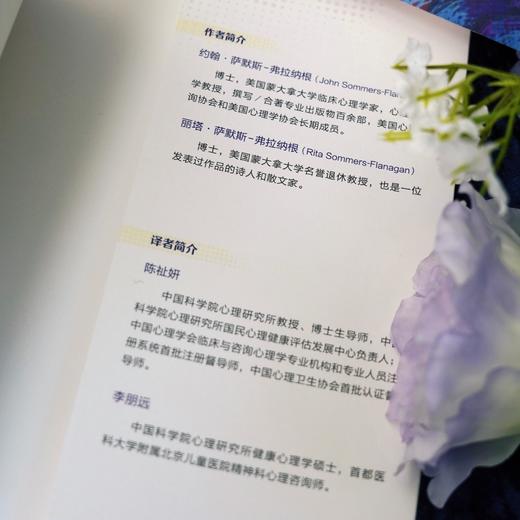 作者简介
约翰·萨默斯-弗拉纳根（John Sommers-Fla
博士，美国蒙大拿大学临床心理学家，心理
学教授，撰写/合著专业出版物百余部，美国心
询协会和美国心理学协会长期成员。
丽塔·萨默斯-弗拉纳根（Rita Sommers-Flanagan）
博士，美国蒙大拿大学名誉退休教授，也是一位
发表过作品的诗人和散文家。
译者简介
陈祉妍
中国科学院心理研究所教授、博士生导师，中
科学院心理研究所国民心理健康评估发展中心负责人；
中国心理学会临床与咨询心理学专业机构和专业人员注
册系统首批注册督导师，中国心理卫生协会首批认证督
导师。
李朋远
中国科学院心理研究所健康心理学硕士，首都医
科大学附属北京儿童医院精神科心理咨询师。